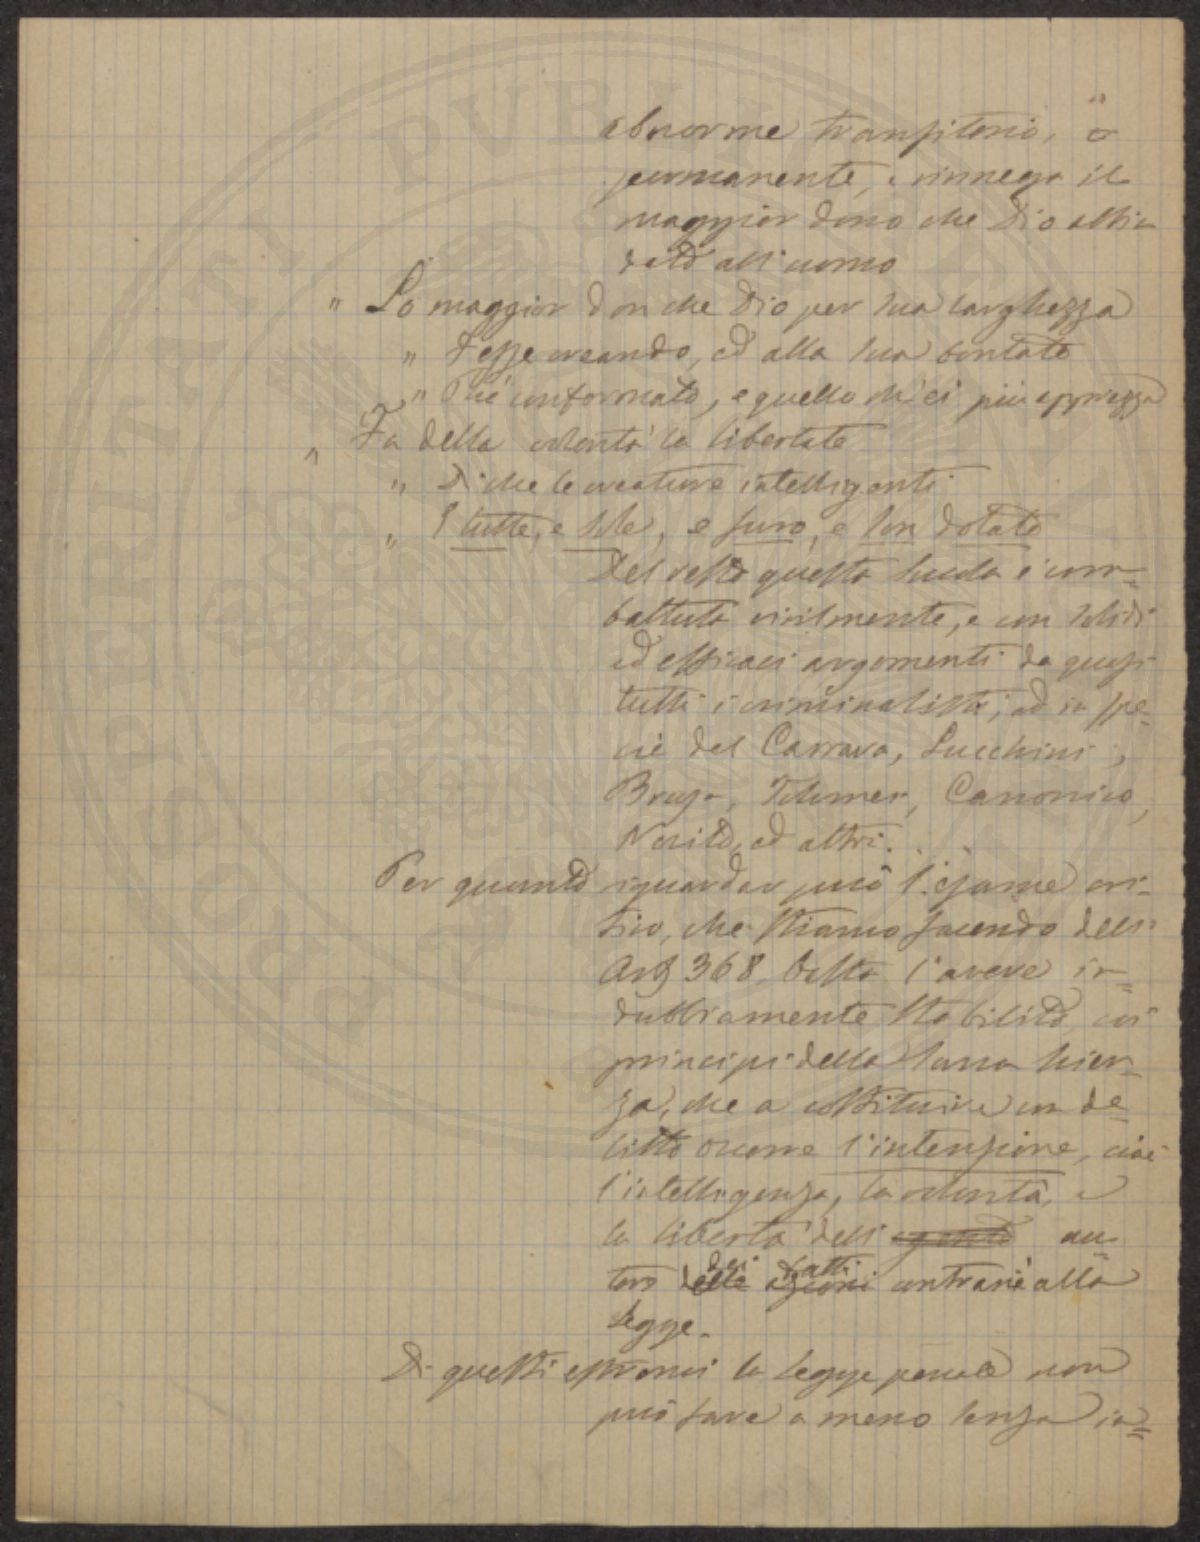 abnorme transitorio, o
permanente, e rinnega il
maggior dono che Dio abbia
dato all'uomo
" Lo maggior don che Dio per sua larghezza
" Fesse creando, ed alla sua bontate
" Più conformato, e quello ch'ei più apprezza
" Fu della volontà la libertate
" Di che le creature intelligenti
" E tutte, e sole, e furo, e son dotate
Del resto questa scuola è com=
battuta virilmente, e con solidi
ed efficaci argomenti da quasi
tutti i criminalisti, ed in spe=
cie dal Carrara, Lucchini,
Brusa, Tolomei, Canonico,
Nocito, ed altri.
Per quanto riguardar può l'esame cri=
tico, che stiamo facendo dell'
Art 368, basta l'avere in=
dubbiamente stabilito, coi
principi della sana scien=
za, che a costituire un de=
litto occorre l'intenzione, cioè
l'intelligenza, la volontà, e
la libertà dell' agente au=
dei fatti
tore delle azioni contrarie alla
legge.
Di questi estremi la legge penale non
può fare a meno senza in=